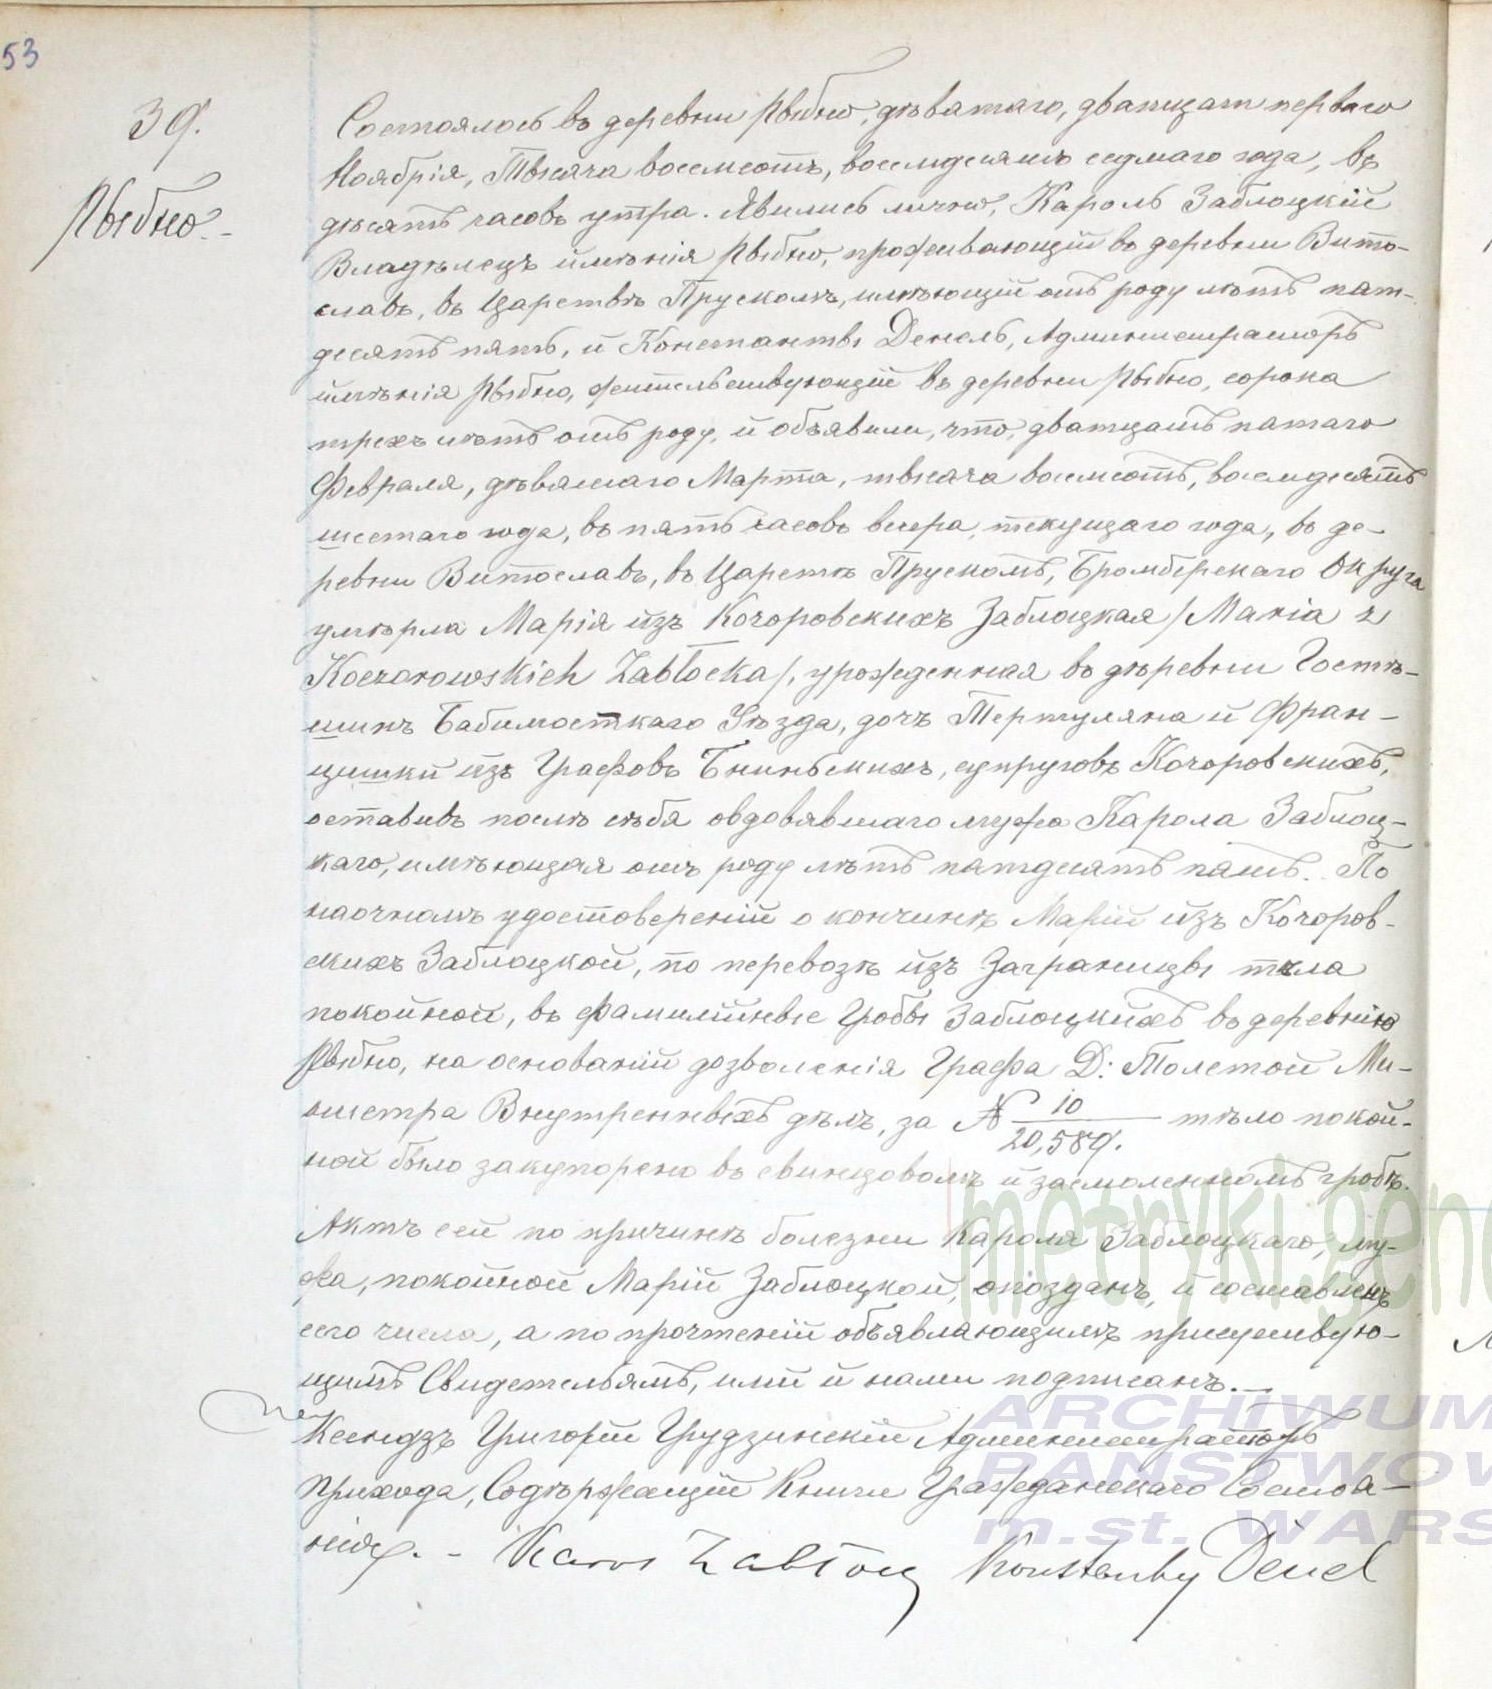 53
39.
Рыбно.-
Состоялось въ деревни Рыбно, дѣватаго, дватцат перваго
Ноябрія, Тысяча восемсотъ, восемдесятъ седмаго года, въ
дѣсять часовъ утра. Явились лично, Кароль Заблоцкій
Владѣлецъ имѣнія Рыбно, проживающій въ деревни Вито-
славъ, въ Царствѣ Прускомъ, имѣющій отъ роду лѣтъ пат-
десятъ пять, й Константы Денель, Администраторъ
имѣнія Рыбно, жительствующій въ деревни Рыбно, сорока
трехъ лѣтъ отъ роду, й объявили, что, дватцать патаго
Февраля, дѣвятаго Марта, тысяча восемсотъ, восемдесятъ
шестаго года, въ пять часовъ вечера, текущаго года, въ де-
ревни Витославъ, въ Царствѣ Прускомъ, Бромбергскаго Округа
умѣрла Марія изъ Кочоровскихъ Заблоцкая /Maria z
Koczorowskich Zabłocka/, урожденная въ дѣревни Гостѣ-
шинъ Бабимосткаго Уѣзда, дочъ Тертуляна й Фран-
цишки изъ Графовъ Бниньскихъ, супруговъ Кочоровскихъ,
оставивъ послѣ сѣбя овдовявшаго мужа Карола Заблоц-
каго, имѣющая отъ роду лѣтъ патдесятъ пать. По
наочномъ удостовереній о кончинѣ Марій изъ Кочоров-
скихъ Заблоцкой, по перевозѣ изъ Заграницы тѣла
покойной, въ Фамилійные Гробы Заблоцкихъ въ деревнію
Рыбно, на основаній дозволенія Графа Д: Толстой Ми-
нистра Внутренныхъ дѣлъ, за № 10/20,589. тѣло покой-
ной было закупорено въ свинцовомъ й засмоленномъ гробѣ.
Актъ сей по причинѣ болезни Кароля Заблоцкаго, му-
жа, покойной Марій Заблоцкой, опозданъ, й составленъ
сего числа, а по прочтеній объявлающимъ присуствую-
щимъ Свидетельямъ, ими й нами подписанъ.-
Ксендзъ Григорій Грудзинскій Администраторъ
Прихода, Содѣржащій Книги Гражданскаго Состоа-
нія. - Karol Zabłocki Konstanty Denel
metryki.gene
ARCHIWUM
PAŃSTWOW
m.st. WARS